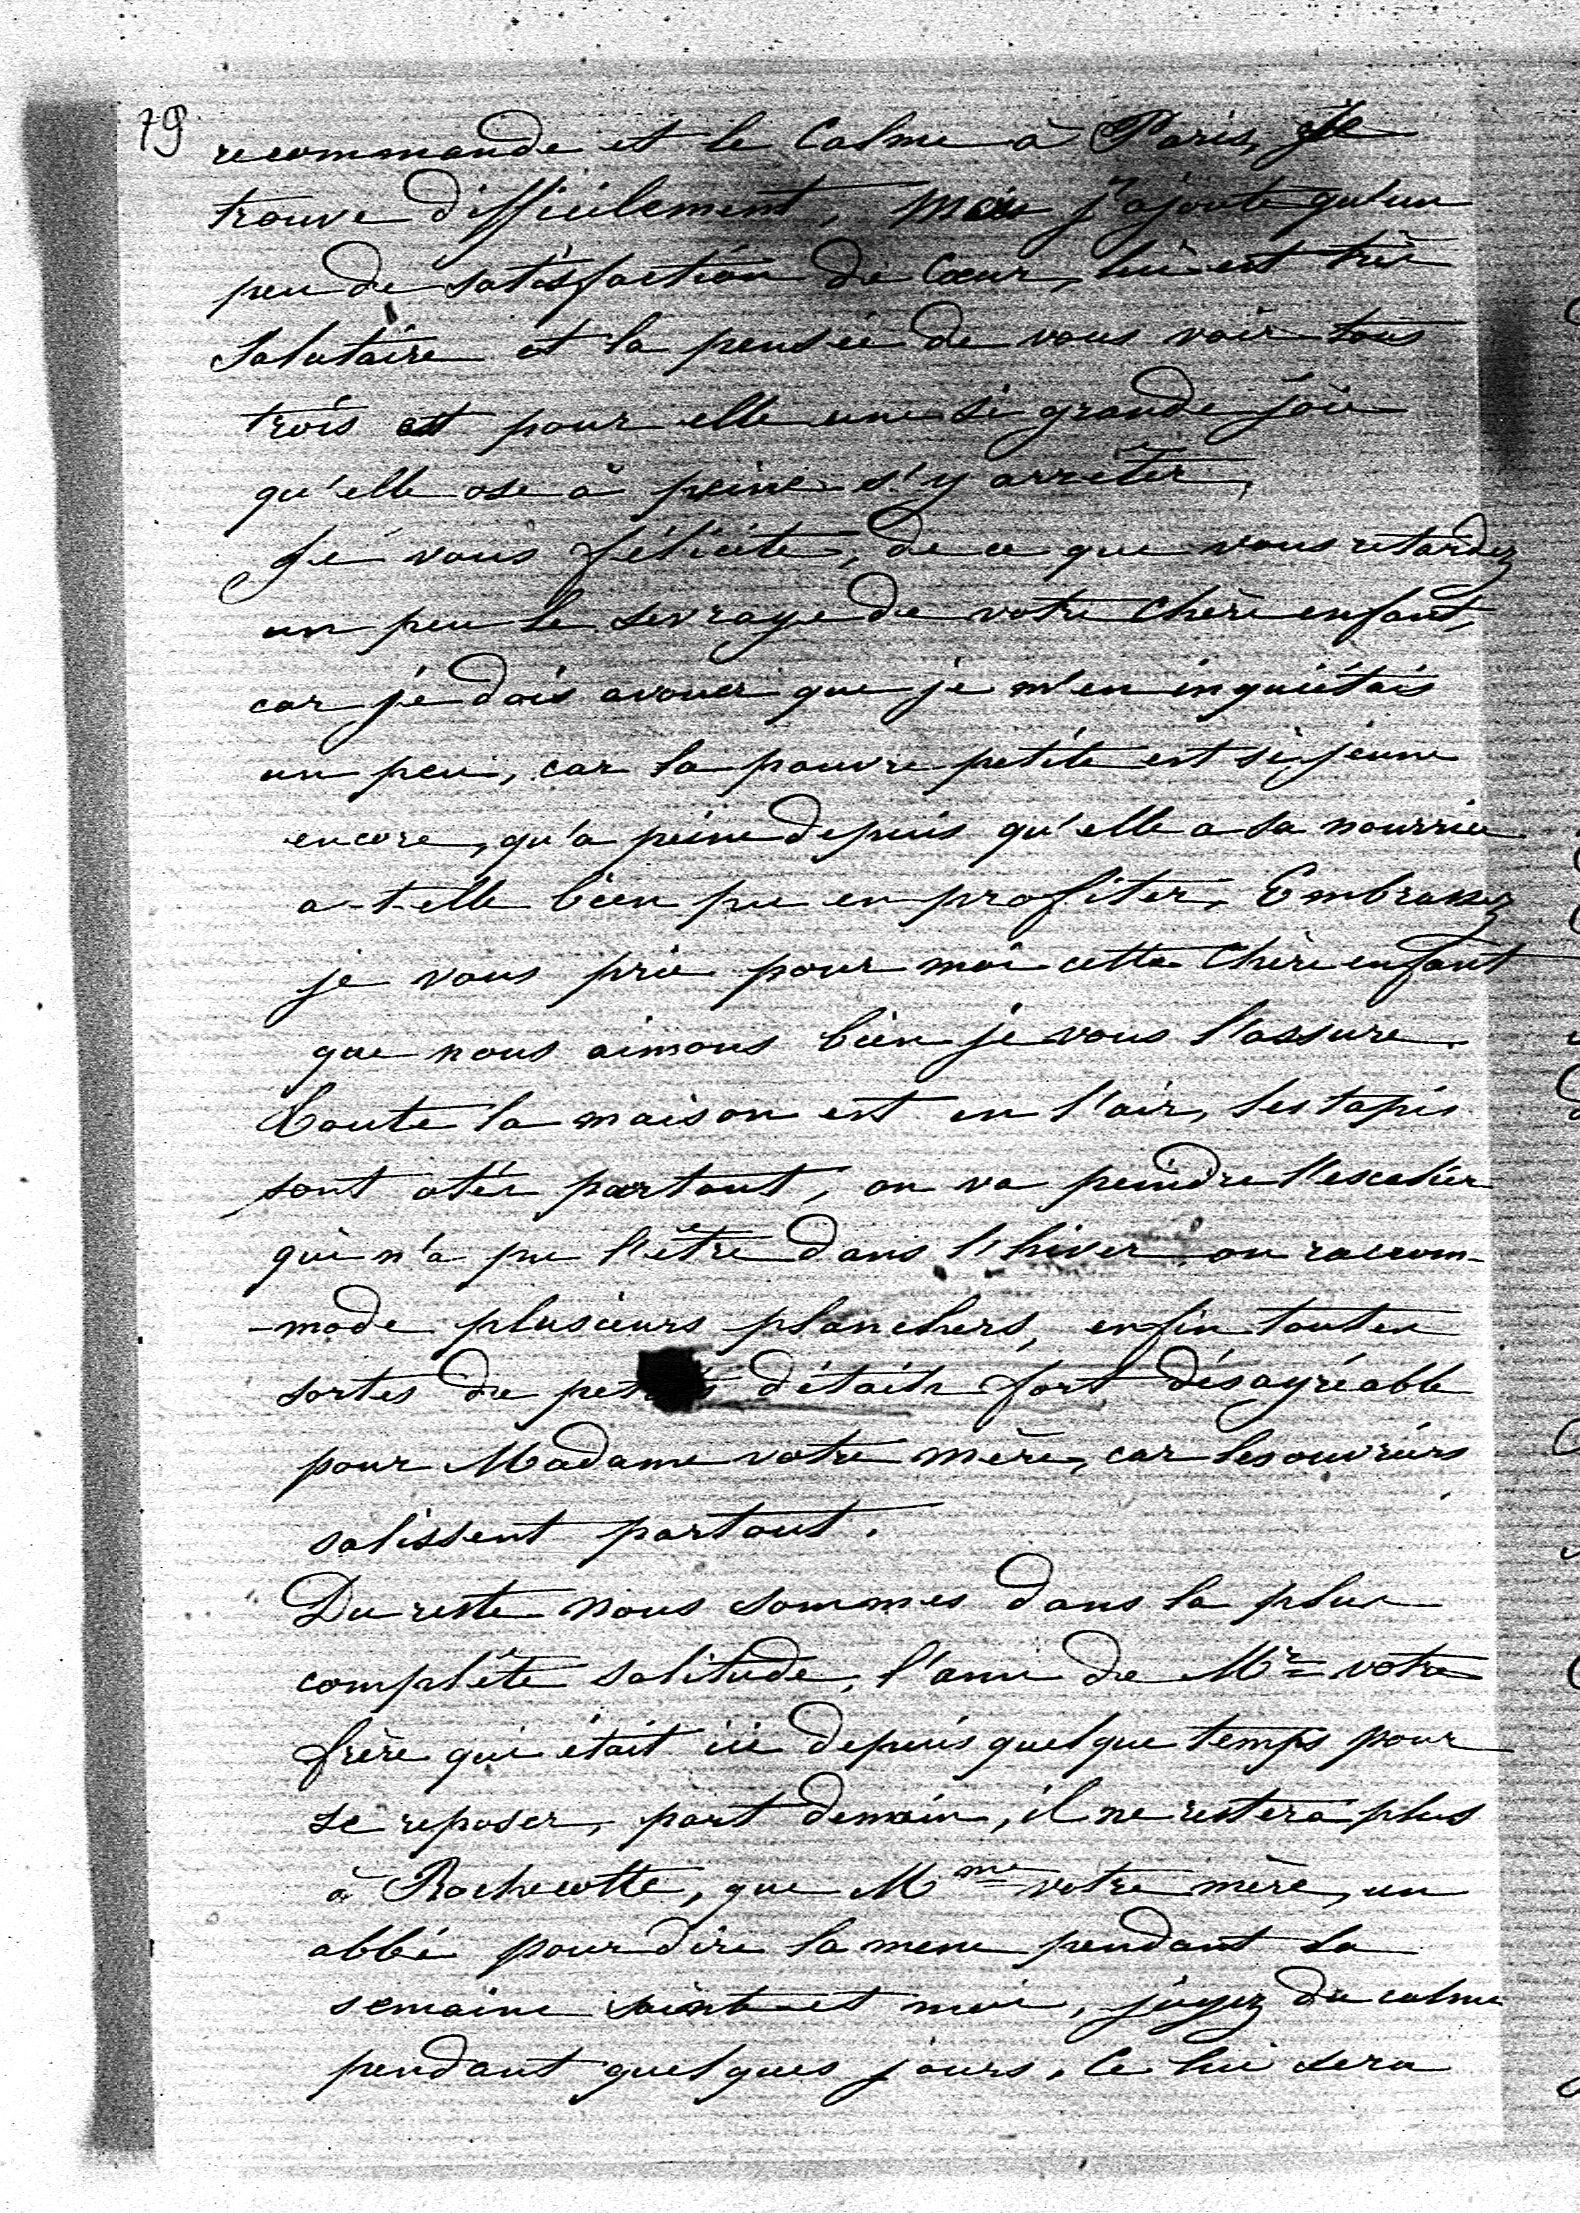 79
recommande et le Calme à Paris, se
trouve difficilement, mais j'ajoute qu'un
peu de satisfaction de Cœur, lui est très
salutaire et la pensée de vous voir tous
trois est pour elle une si grande joie
qu'elle ose à peine s'y arrêter,
Je vous félicite, de ce que vous retardez
un peu le sevrage de votre chère enfant,
car je dois avouer que je m'en inquiétais
un peu, car la pauvre petite est si jeune
encore, qu'a peine depuis qu'elle a sa nourrice
a-t-elle bien pu en profiter, Embrassez
je vous prie pour moi cette chère enfant
que nous aimons bien je vous l'assure.
Toute la maison est en l'air, les tapis
sont otés partout, on va peindre l'escalier
qui n'a pu l'être dans l'hiver on raccom-
-mode plusieurs planchers, enfin toutes
sortes de petits détails fort désagréable
pour Madame votre mère, car les ouvriers
salissent partout.
Du reste nous sommes dans la plus
complète solitude, l'ami de Mr votre
frère qui était ici depuis quelque temps pour
se reposer, part demain, il ne restera plus
à Rochecotte, que Mme votre mère, un
abbé pour dire la messe pendant la
semaine sainte et moi, jugez du calme
pendant quelques jours. Ce lui sera